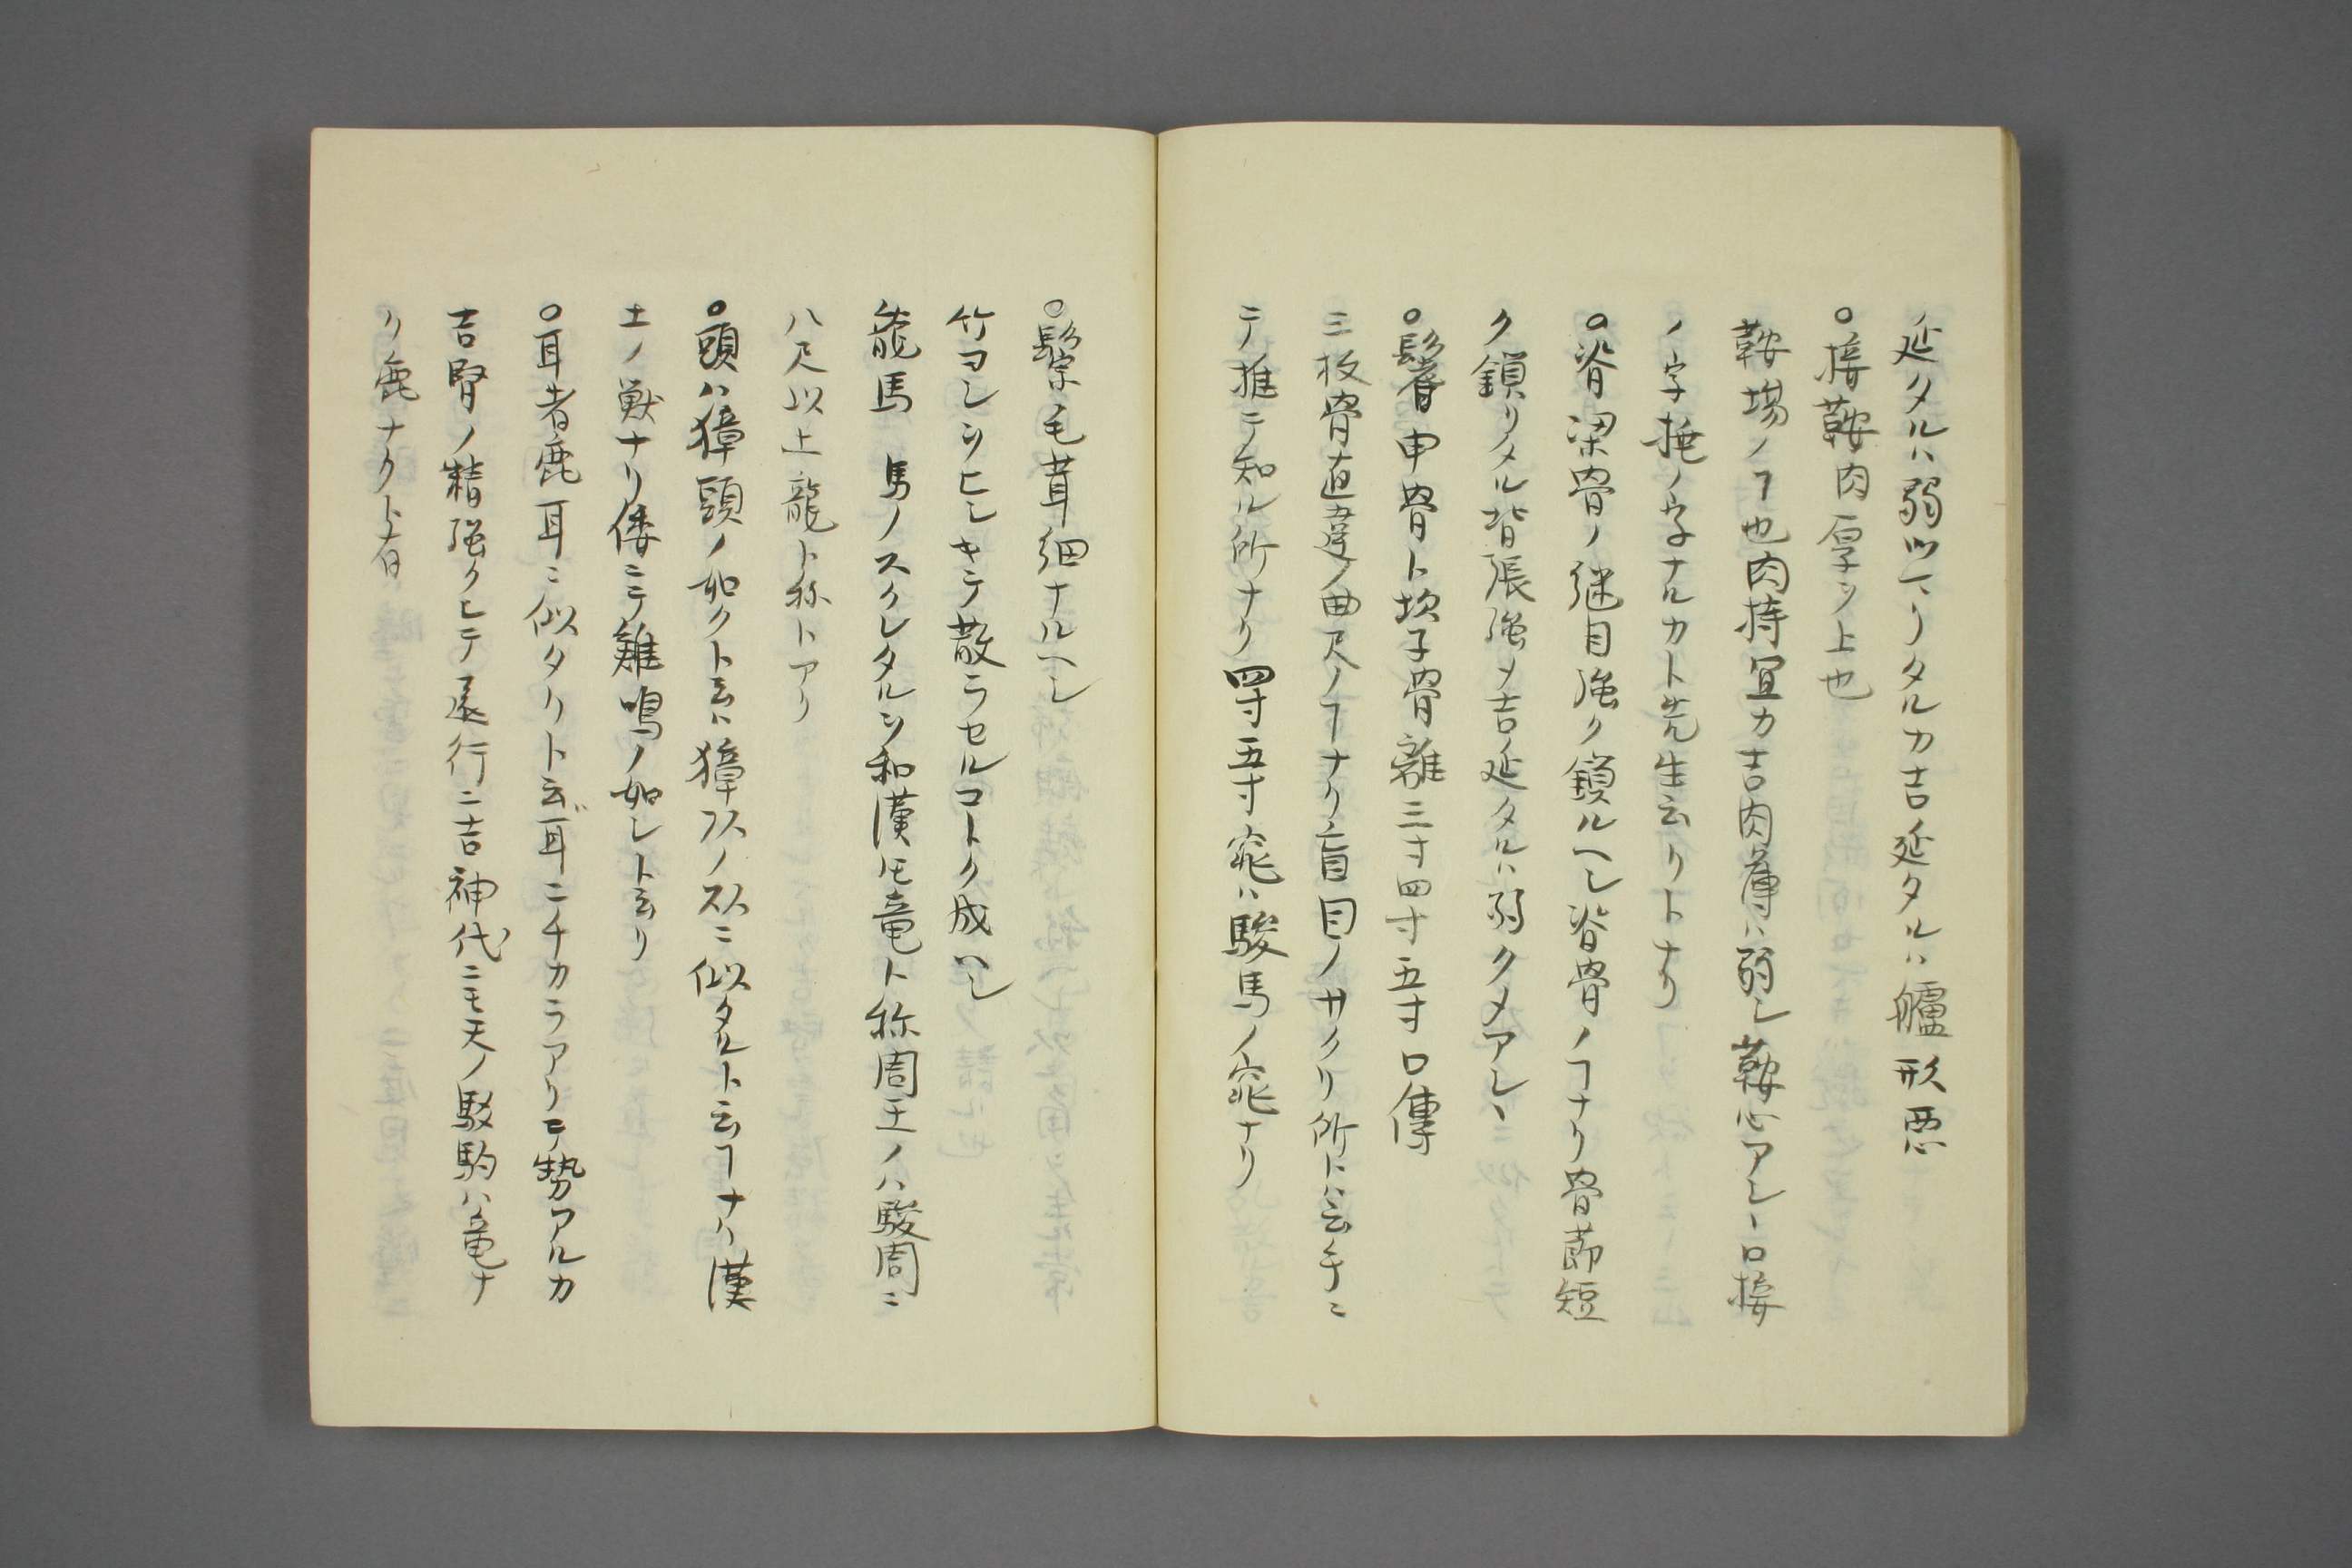 延タルハ弱ツマリタルカ吉延タルハ艫形悪
○接鞍肉厚ヲ上也
鞍場ノヿ也肉持宜カ吉肉薄ハ弱シ鞍心アシヽ口接
ノ字挽ノ字ナルカト先生云リトナリ
○脊梁骨ノ継目強ク鎖ルヘシ脊骨ノヿナリ骨節短
ク鎖リタル背張強メ吉延タルハ弱クメアシヽ
○鬐申骨ト坎子骨離三寸四寸五寸口傳
三枚骨直違ノ曲尺ノヿナリ盲目ノサクリ所トハ云手ニ
テ推テ知ル所ナリ四寸五寸窕ハ駿馬ノ窕ナリ
○鬃毛茸細ナルヘシ
竹ヨシヲヒシキテ散ラセルコトク成ヘシ
龍馬 馬ノスクレタルヲ和漢トモ竜ト称周王ノハ駿周ニ
八尺以上龍ト称トアリ
○頭ハ獐頭ノ如クト云ハ獐ハ犬ノ犬ニ似タルト云ヿナリ漢
土ノ獣ナリ倭ニテ難鳴ノ如シト云リ
○耳者鹿耳ニ似タリト云ド耳ニチカラアリテ勢アルカ
吉腎ノ精強クシテ遠行ニ吉神代ニモ天ノ駁駒ハ竜ナ
リ鹿ナクト有